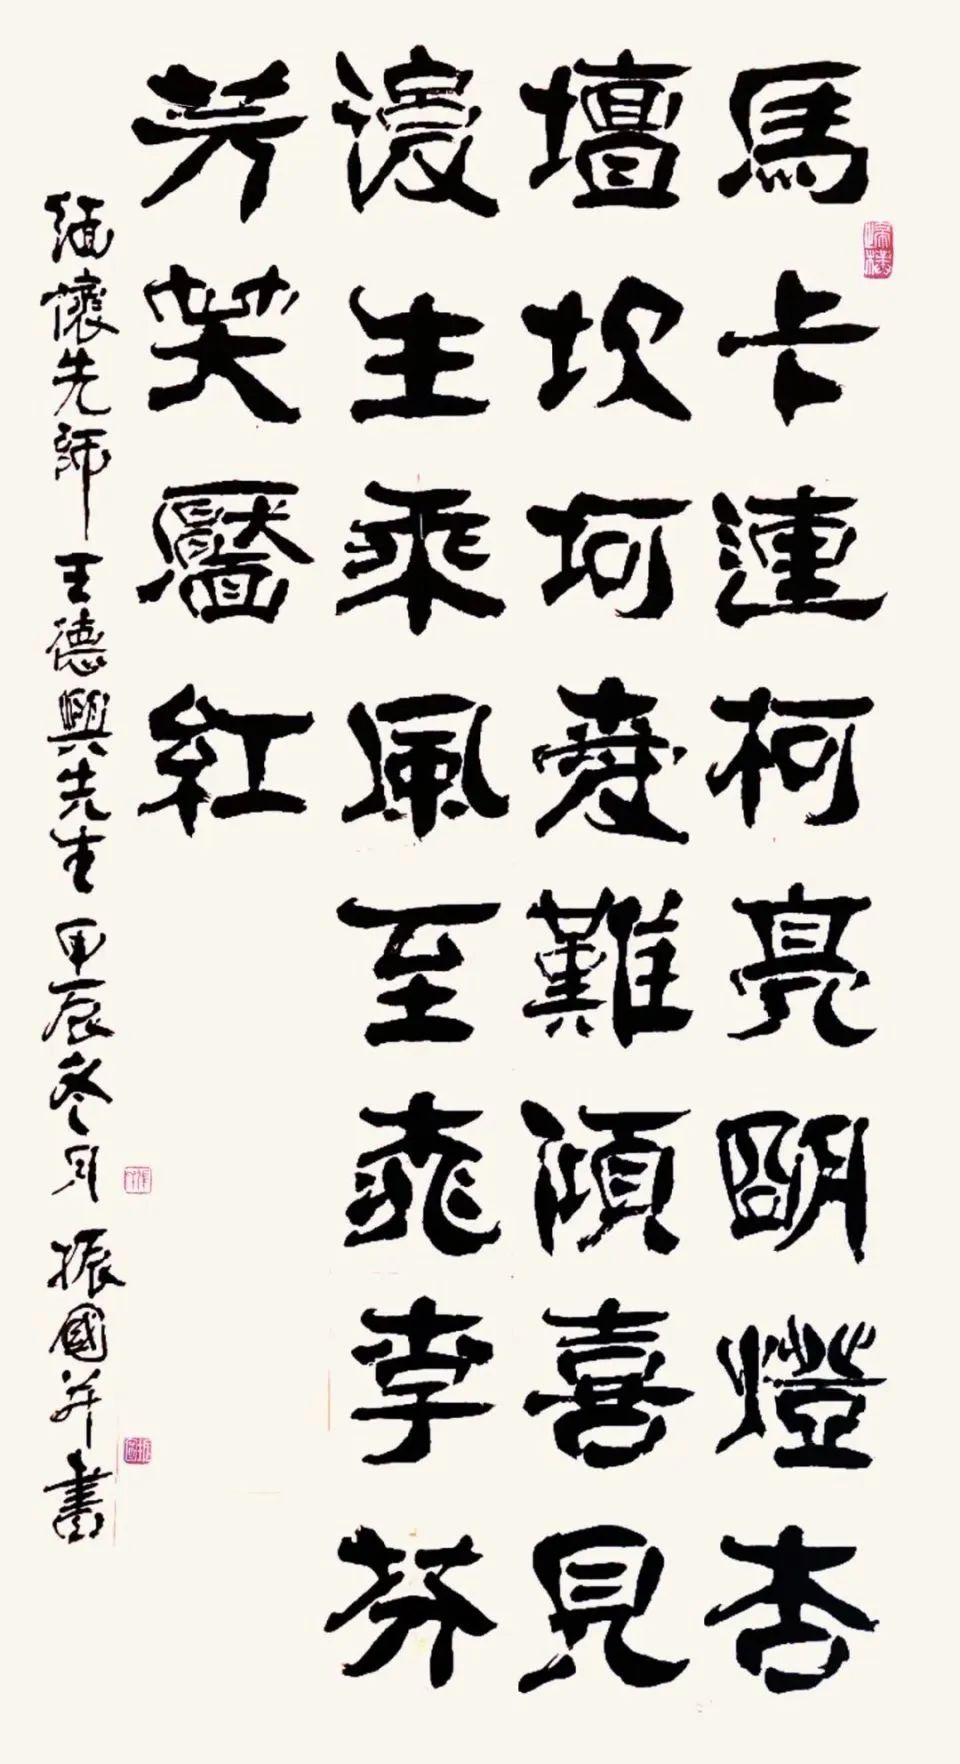 馬卡連柯亮朙燈杏
壇坎坷難傾喜見
後生乘風至桃李芬
芳笑靨紅
緬懷先師王德興先生甲辰冬月振國并書